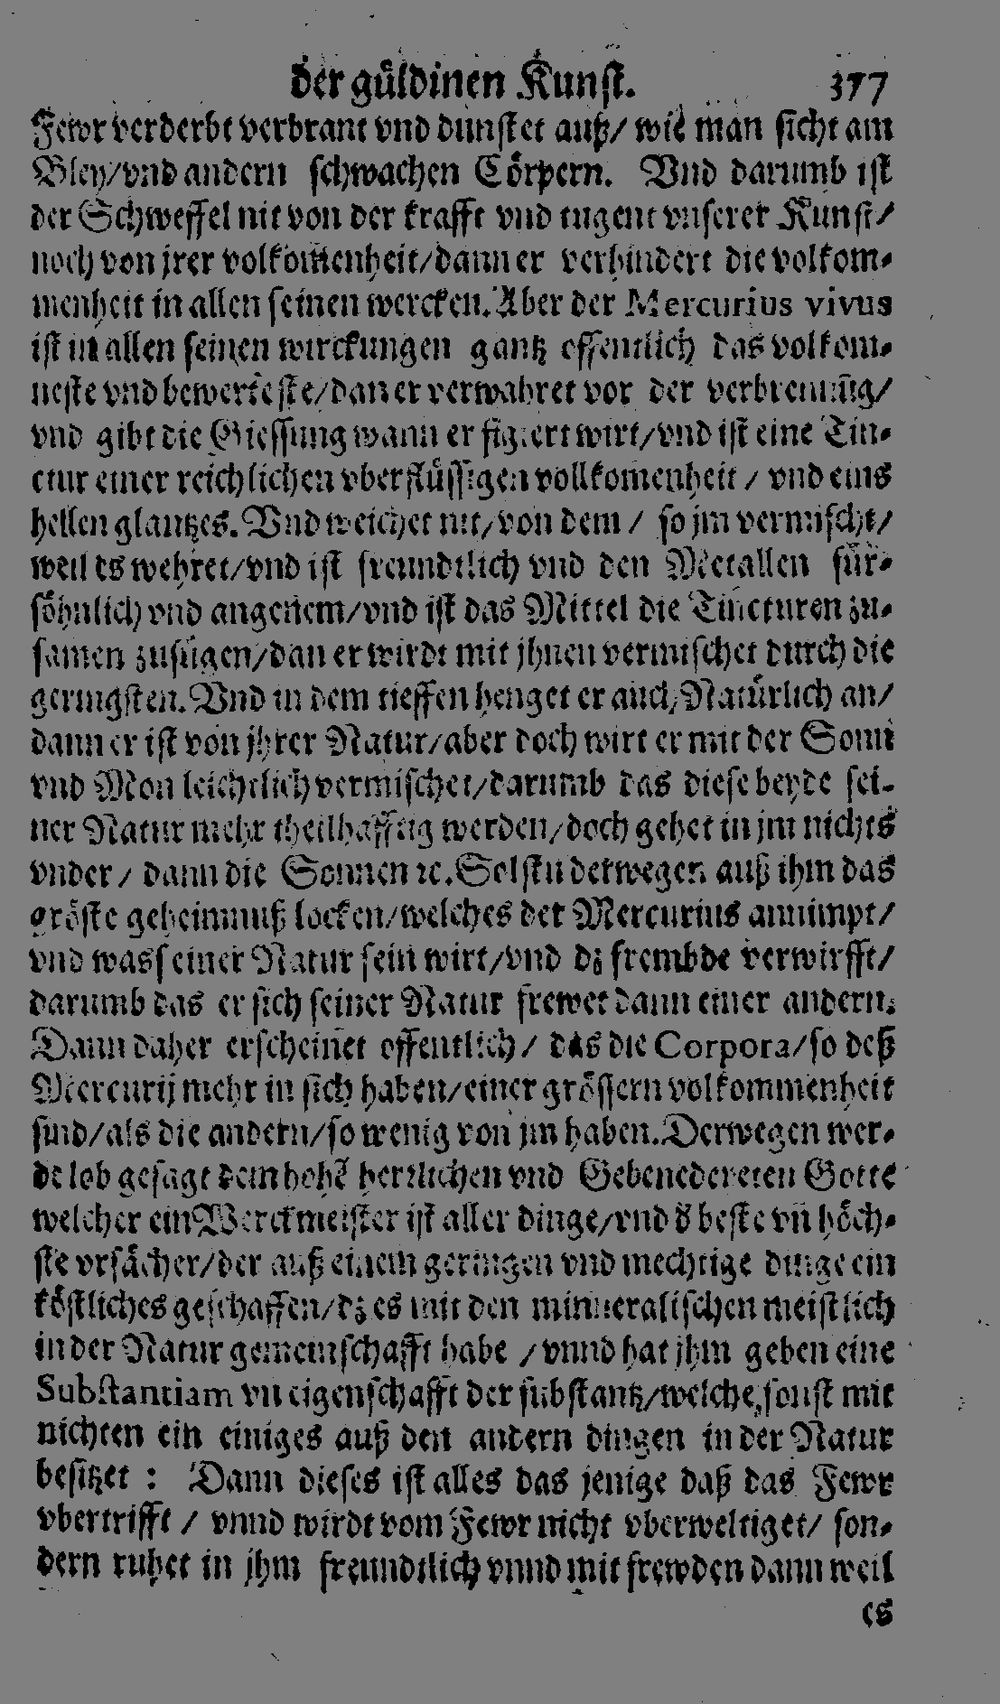 der güldinen Kunst. 377
Fewr verderbt verbrant vnd dunstet auß/ wie man sicht am
Bley/vnd andern schwachen Cörpern. Vnd darumb ist
der Schweffel nit von der krafft vnd tugent vnserer Kunst/
noch von jrer volkom̃enheit/dann er verhindert die volkom-
menheit in allen seinen wercken. Aber der Mercurius vivus
ist in allen seinen wirckungen gantz offentlich das volkom-
neste vnd bewerteste/dan er verwahret vor der verbrennũg/
vnd gibt die Giessung wann er figiert wirt/vnd ist eine Tin-
ctur einer reichlichen vberflüssigen vollkomenheit / vnd eins
hellen glantzes. Vnd weichet nit/von dem / so jm vermischt/
weil es wehret/vnd ist freundtlich vnd den Metallen für-
söhnlich vnd angenem/vnd ist das Mittel die Tincturen zu-
samen zufügen/dan er wirdt mit jhnen vermischet durch die
geringsten. Vnd in dem tieffen henget er auch Natürlich an/
dann er ist von jhrer Natur/aber doch wirt er mit der Sonn
vnd Mon leichtlich vermischet/darumb das diese beyde sei-
ner Natur mehr theilhafftig werden/doch gehet in jm nichts
vnder / dann die Sonnen ꝛc. Solstu derwegen auß ihm das
gröste geheimnuß locken/welches der Mercurius annimpt/
vnd was seiner Natur sein wirt/vnd dz frembde verwirfft/
darumb das er sich seiner Natur frewet dann einer andern.
Dann daher erscheinet offentlich / das die Corpora/so deß
Mercurij mehr in sich haben/einer grössern volkommenheit
sind/als die andern/so wenig von jm haben. Derwegen wer-
de lob gesagt dem hohẽ herrlichen vnd Gebenedeyeten Gotte
welcher ein Werckmeister ist aller dinge/vnd d' beste vñ höch-
ste vrsächer/der auß einem geringen vnd mechtige dinge ein
köstliches geschaffen/dz es mit den minneralischen meistlich
in der Natur gemeinschafft habe / vnnd hat jhm geben eine
Substantiam vñ eigenschafft der substantz/welche sonst mit
nichten ein einiges auß den andern dingen in der Natur
besitzet : Dann dieses ist alles das jenige daß das Fewr
vbertrifft / vnnd wirdt vom Fewr nicht vberweltiget/ son-
dern ruhet in jhm freundtlich vnnd mit frewden dann weil
es